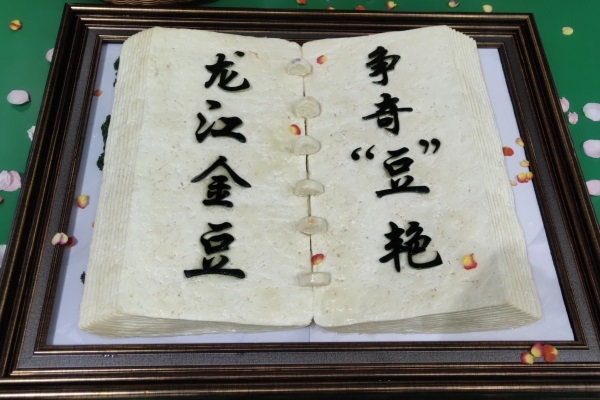 龙江金豆
争奇“豆”艳